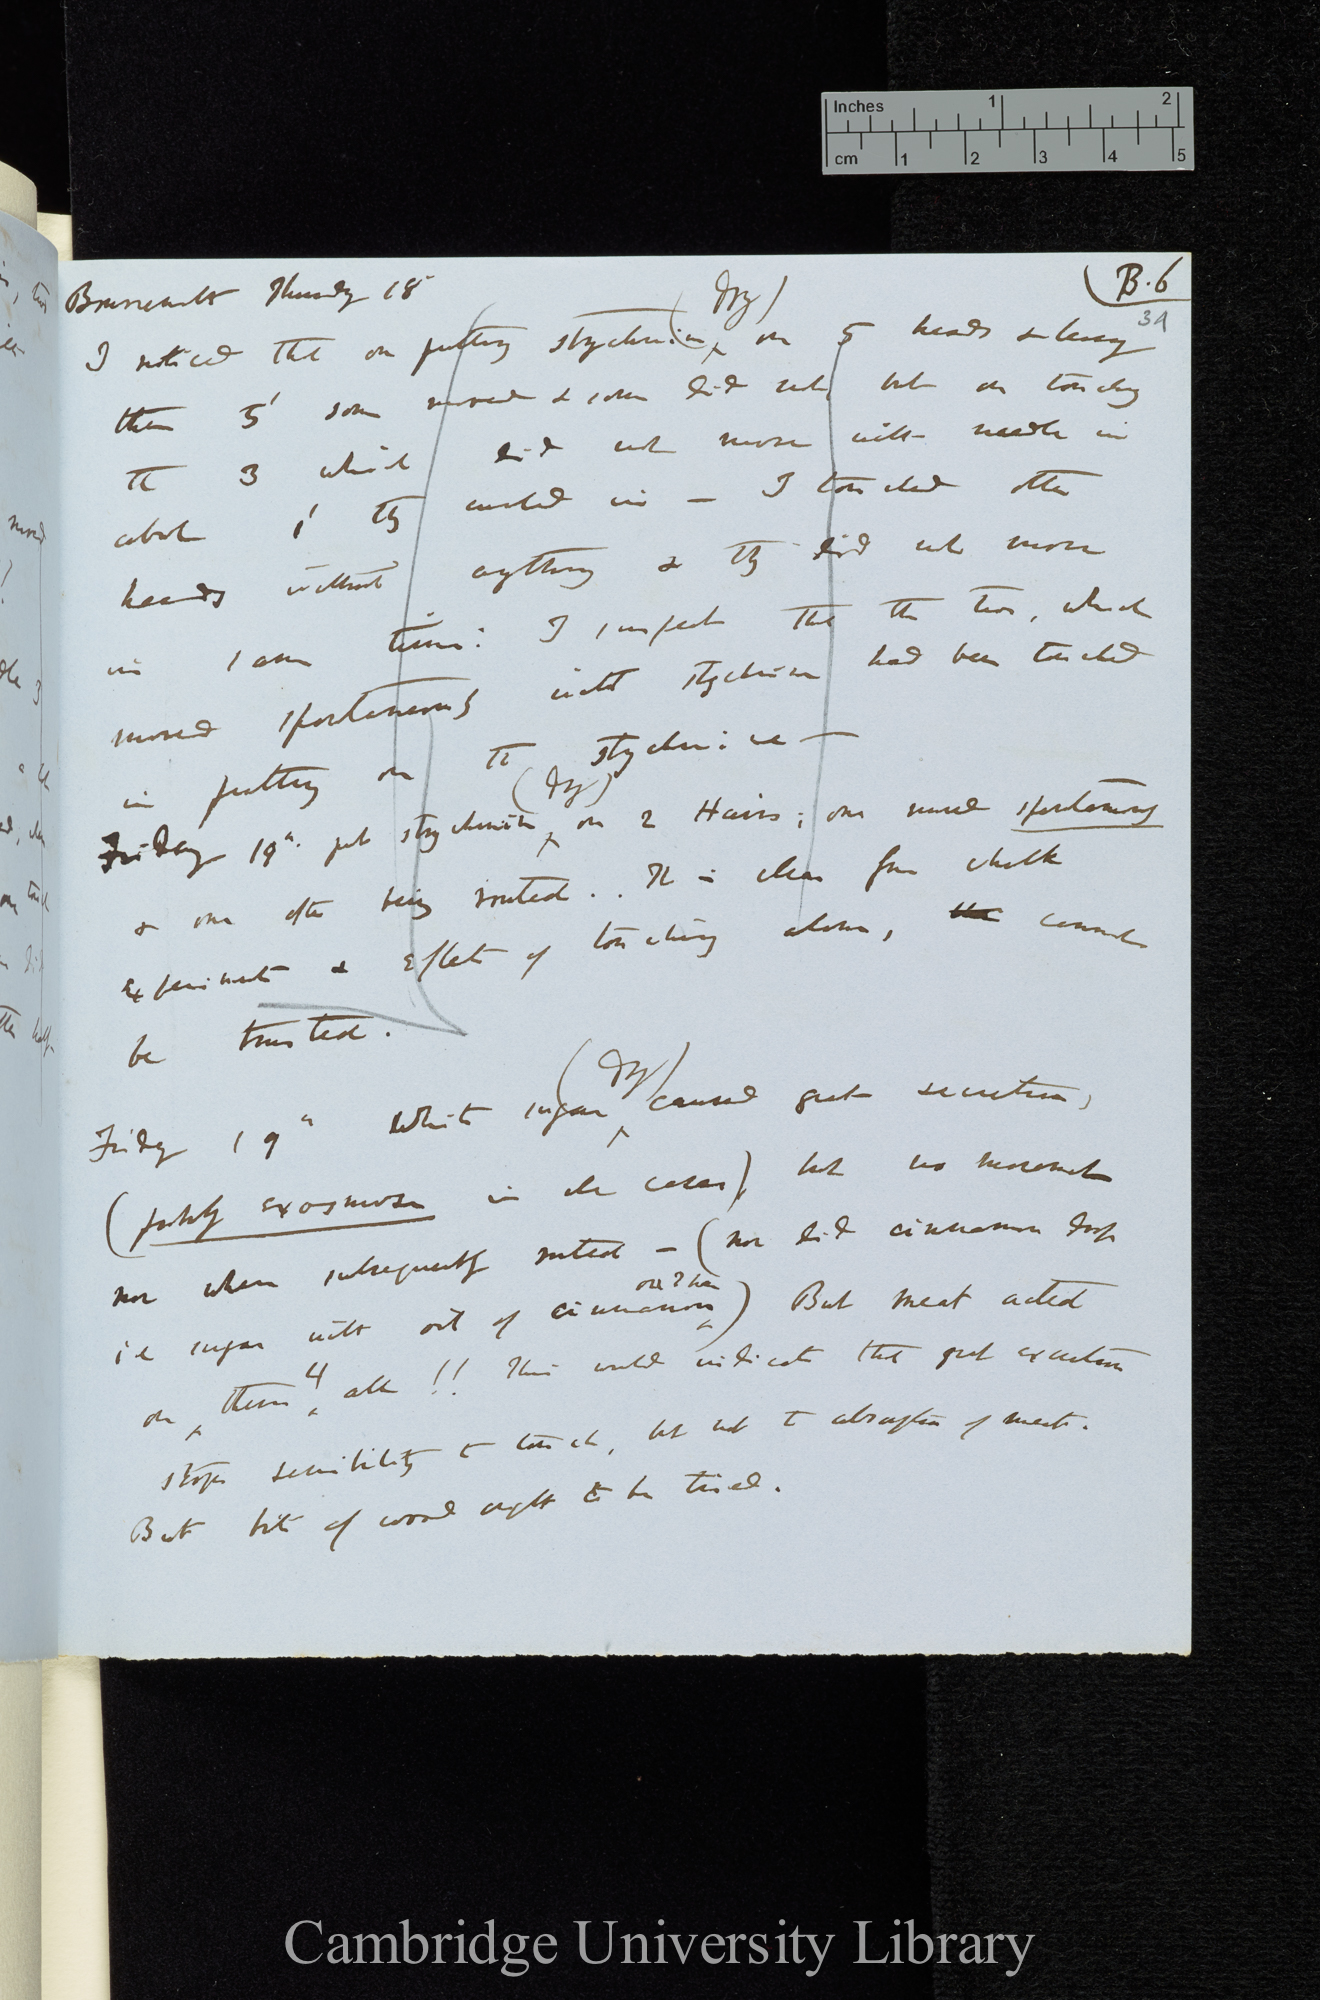 Inches 1 2
cm 1 2 3 4 5
B.6
39
Bournemouth Thursday 18
I noticed that on putting strychnine ^(dry) on 5 heads & leaving
them 5' some moved & some did not, but on touching
the 3 which did not move with needle in
about 1' they curled in — I touched other
heads without anything & they did not move
in same time: I suspect that the two, which
moved spontaneously with strychnine had been touched
in putting on the strychnine —
Friday 19th. put strychnine ^(dry) on 2 Hairs; one moved spontaneously
& one after being routed.. It is clear from chalk
experiments & effects of touching alone, cannot
be trusted.
Friday 19th White sugar ^(dry) caused great secretion,
(partly exosmose in all cases), but no movement
nor when subsequently — (nor did cinnamon drops
i.e sugar with oil of cinnamon) But meat acted
on ^them 4 all !! This would indicate that great excretion
stops sensibility to touch, but not to absorption of meat.
But bits of wood ought to be tried.
Cambridge University Library